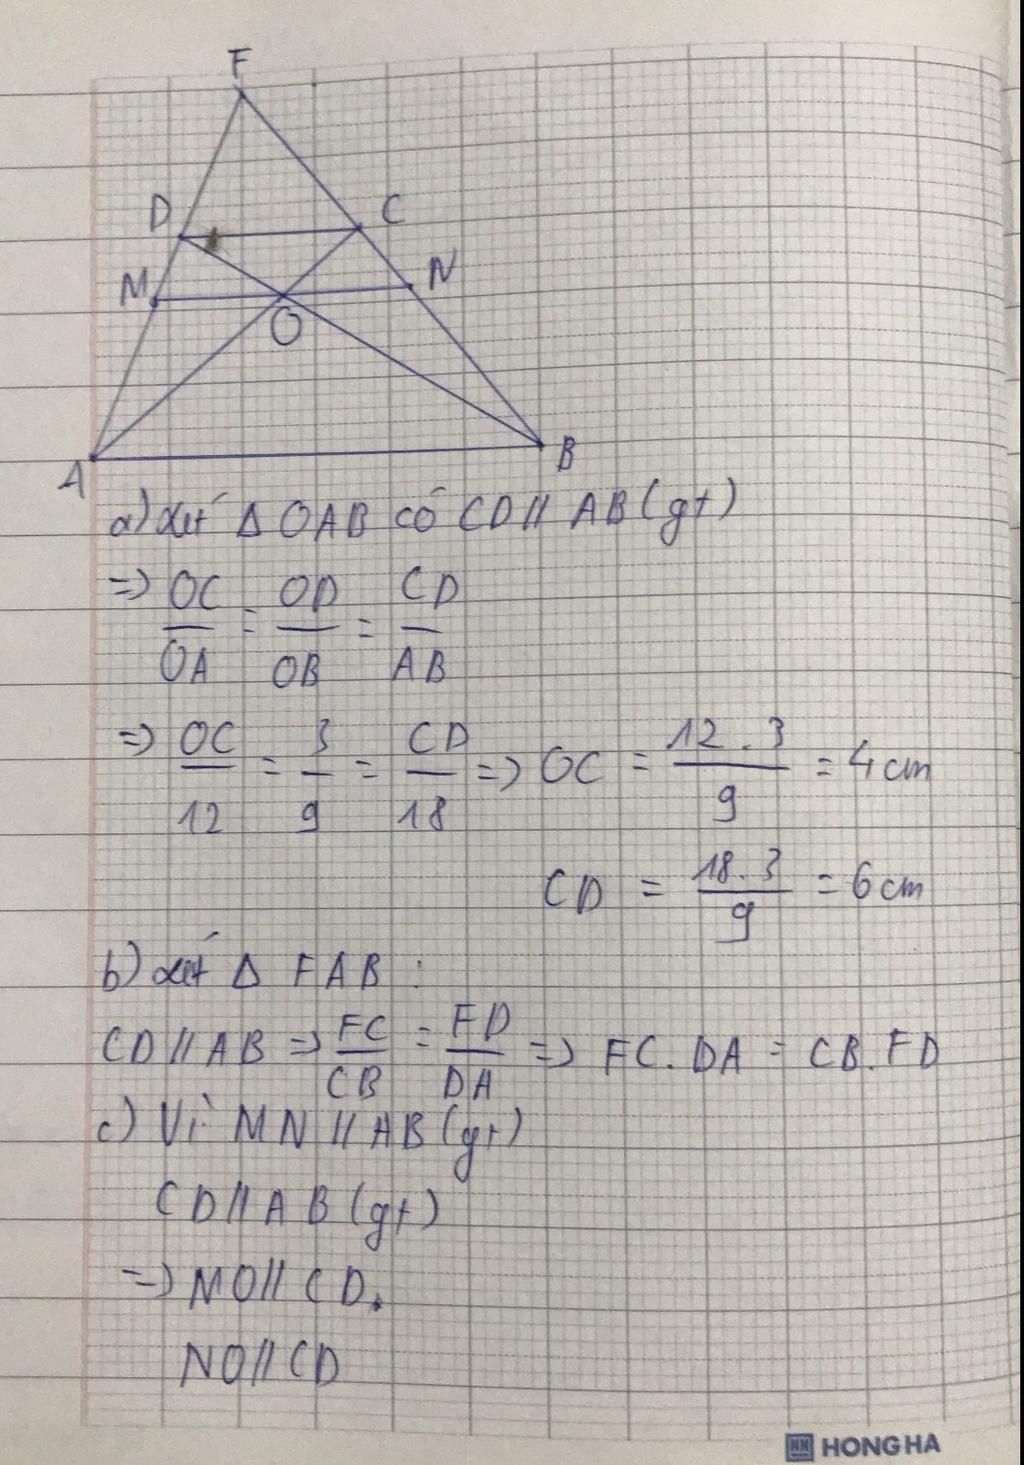 F
D
C
M
N
O
A
B
a) xét Δ OAB có CD // AB (gt)
=> OC/OA = OD/OB = CD/AB
=> OC/12 = 3/9 = CD/18 => OC = 12.3/9 = 4 cm
CD = 18.3/9 = 6 cm
b) xét Δ FAB :
CD // AB => FC/CB = FD/DA => FC.DA = CB.FD
c) Vì MN // AB (gt)
CD // AB (gt)
=> MO // CD.
NO // CD
HONG HA